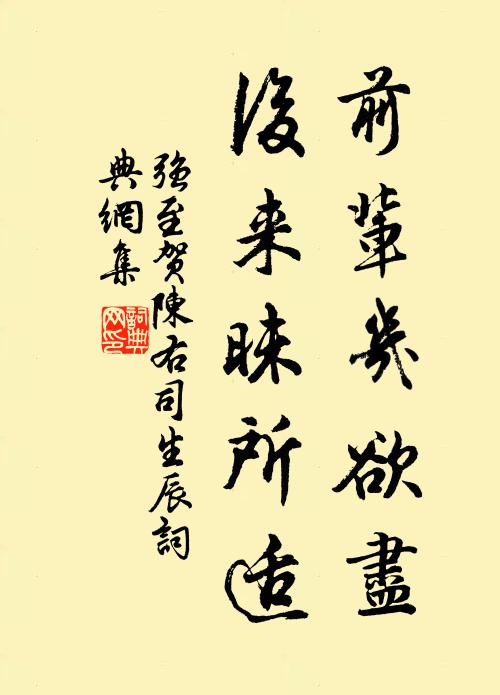 前輩幾欲盡
後来昧所适
強至賀陳右司生辰詞
典網集
詞典网印